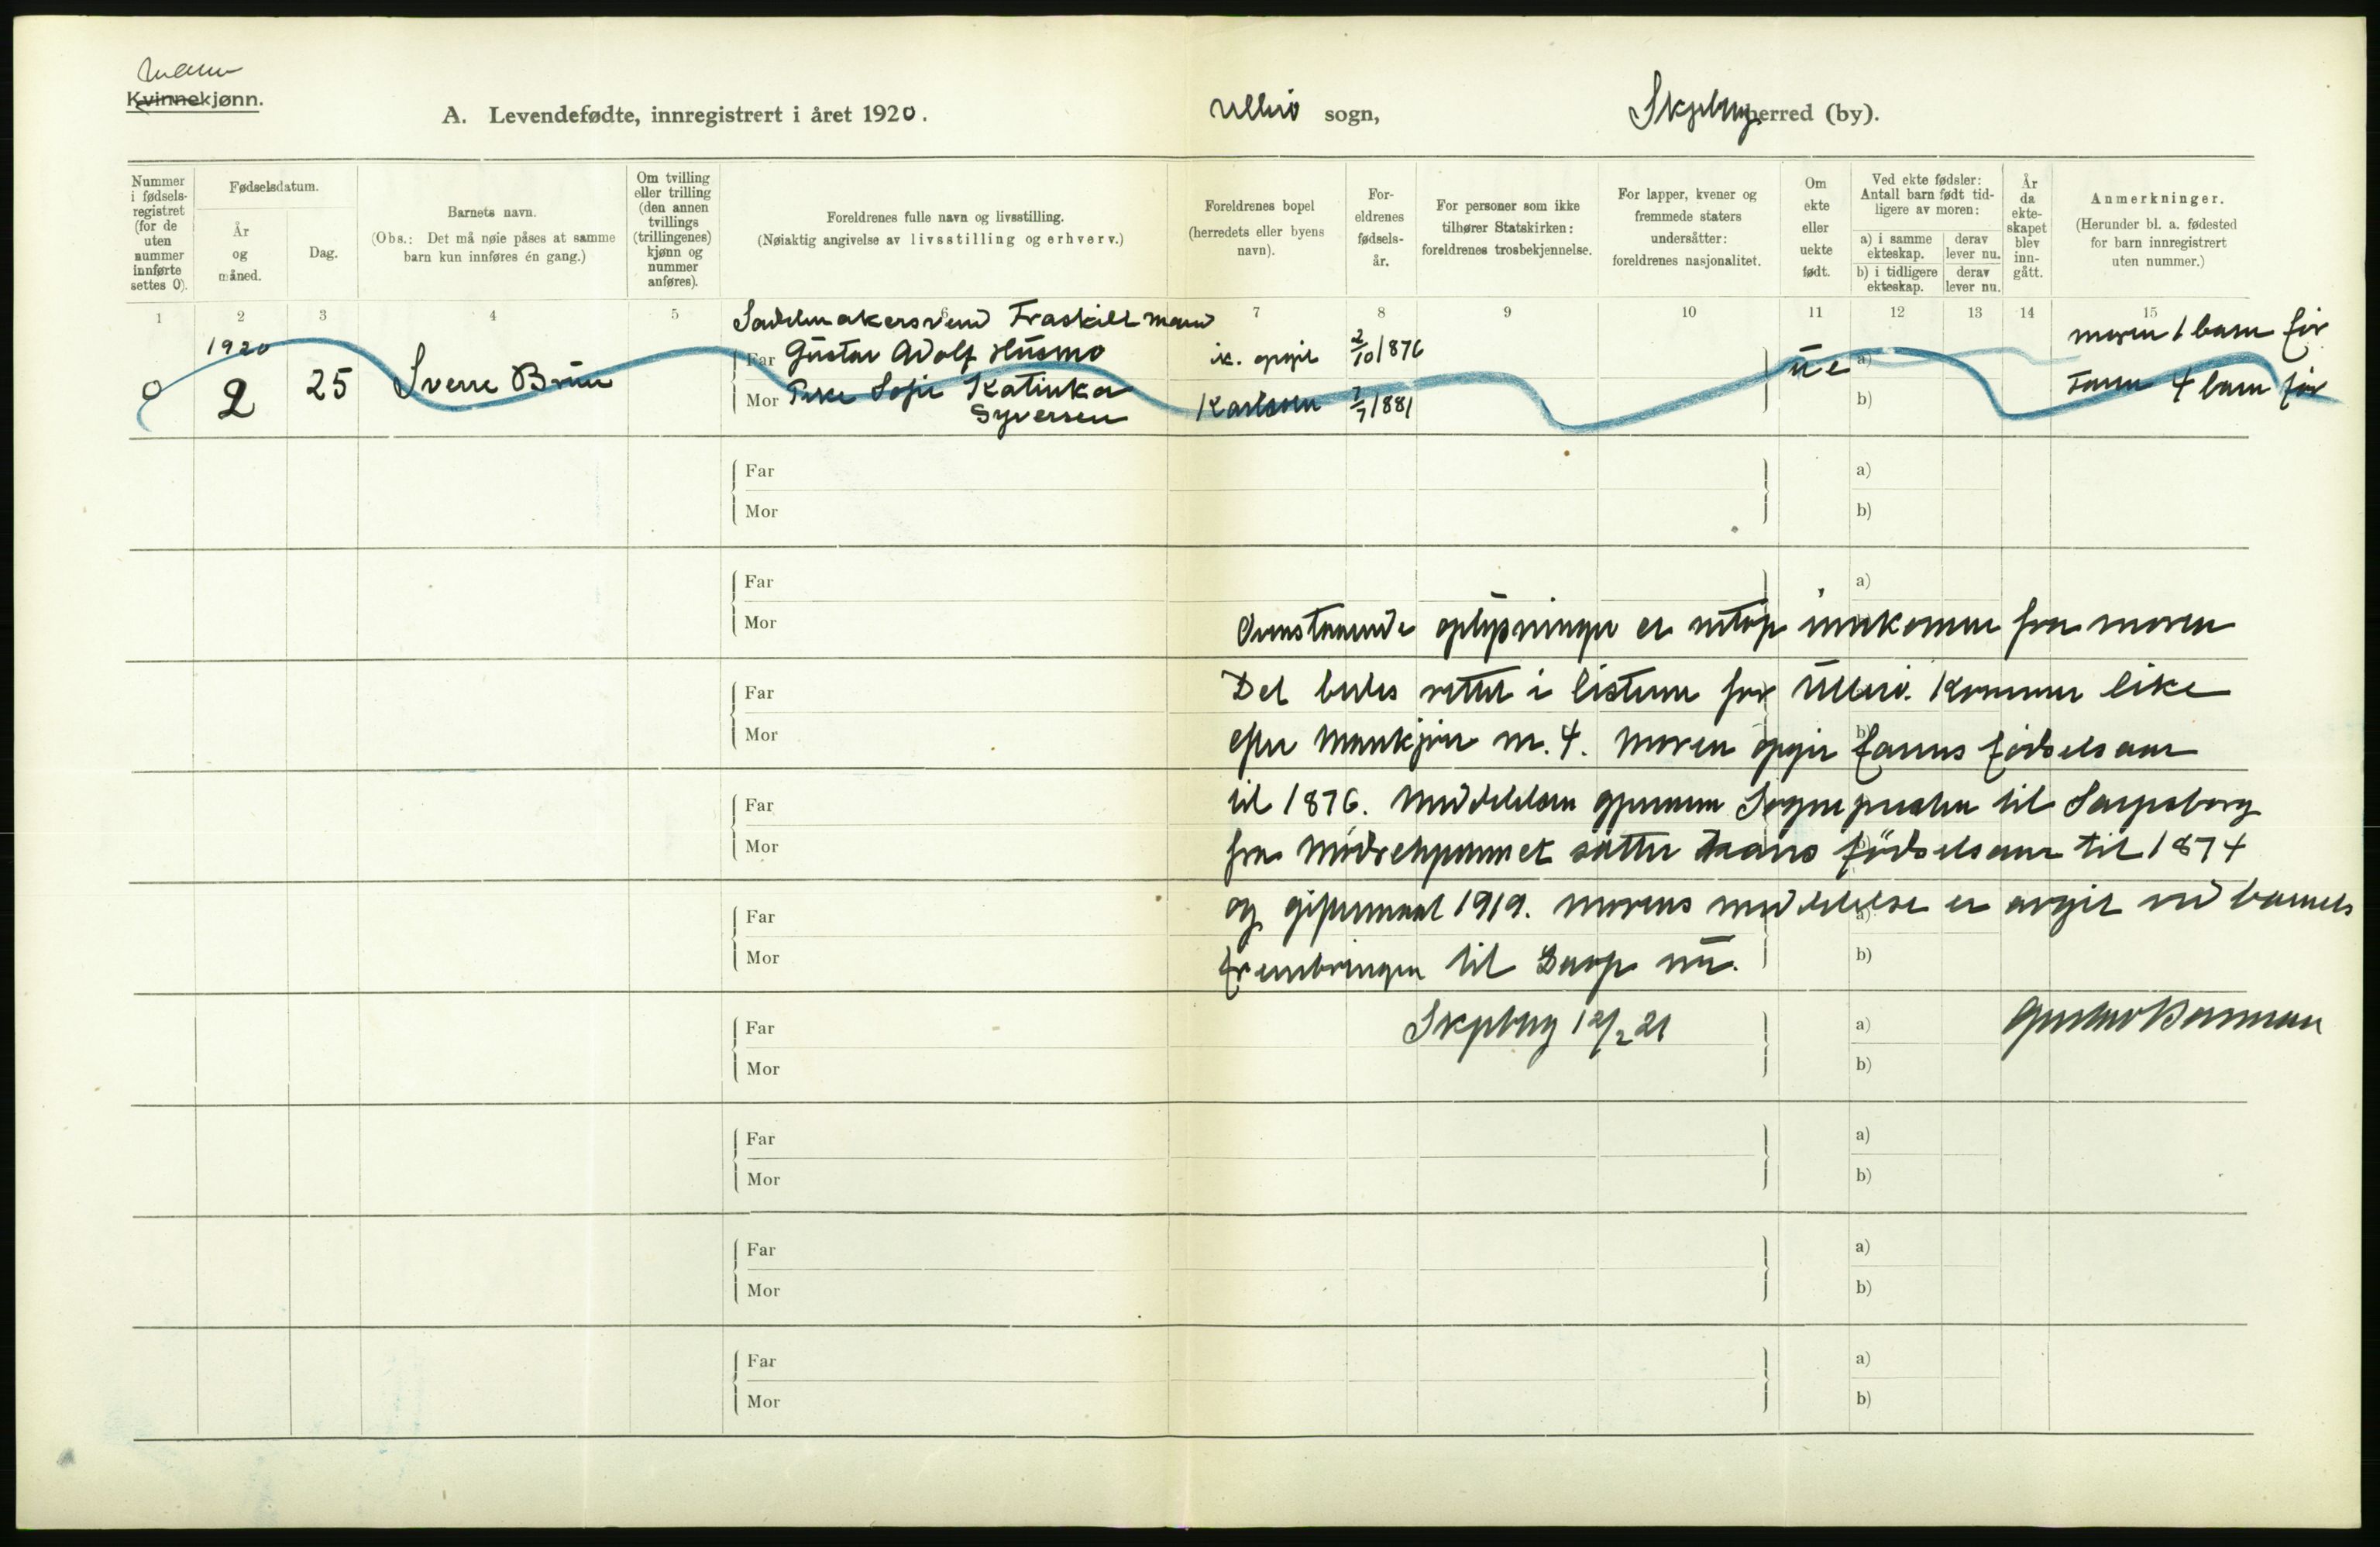 Mann
Kvinnekjønn.
A. Levendefødte, innregistrert i året 1920.
Ullerö sogn,
Skjeberg herred (by).
Nummer i fødsels-registret (for de uten nummer innførte settes 0).
Fødselsdatum.
År og måned.
Dag.
Barnets navn.
(Obs.: Det må nøie påses at samme barn kun innføres én gang.)
Om tvilling eller trilling (den annen tvillings (trillingenes) kjønn og nummer anføres).
Foreldrenes fulle navn og livsstilling.
(Nøiaktig angivelse av livsstilling og erhverv.)
Foreldrenes bopel (herredets eller byens navn).
For-eldrenes fødsels-år.
For personer som ikke tilhører Statskirken: foreldrenes trosbekjennelse.
For lapper, kvener og fremmede staters undersåtter: foreldrenes nasjonalitet.
Om ekte eller uekte født.
Ved ekte fødsler: Antall barn født tid-ligere av moren:
a) i samme ekteskap.
derav lever nu.
b) i tidligere ekteskap.
derav lever nu.
År da ekte-skapet blev inn-gått.
Anmerkninger.
(Herunder bl. a. fødested for barn innregistrert uten nummer.)
1 2 3 4 5 6 7 8 9 10 11 12 13 14 15
Sadelmakersvend Fraskilt mand
0 1920 2 25 Sverre
Far Gustav Adolf Husmo ik. opgit 2/10 1876
Mor Pike Sofie Katinka Syversen Karlsöen 7/7 1881
ue
a)
b)
moren 1 barn för
Faren 4 barn för
Far a)
Mor b)
Far a)
Mor
Ovenstaaende oplysninger er netop innkommen fra moren
Far
Det bedes rettet i listerne for Ullerö. Kommer like
Mor b)
efter Mankjön nr. 4. Moren opgir farens födselsaar
Far
til 1876. Meddelelsen gjennem Sognepresten til Sarpsborg
Mor
fra Mödrehjemmet sætter hans födselsaar til 1874
Far a)
og giftermaal 1919. Morens meddelelse er avgit ved barnets
Mor b)
frembringen til Daap nu.
Far a)
Skjeberg 12/2 21
Mor b)
Far a)
Mor b)
Far a)
Mor b)
Far a)
Mor b)